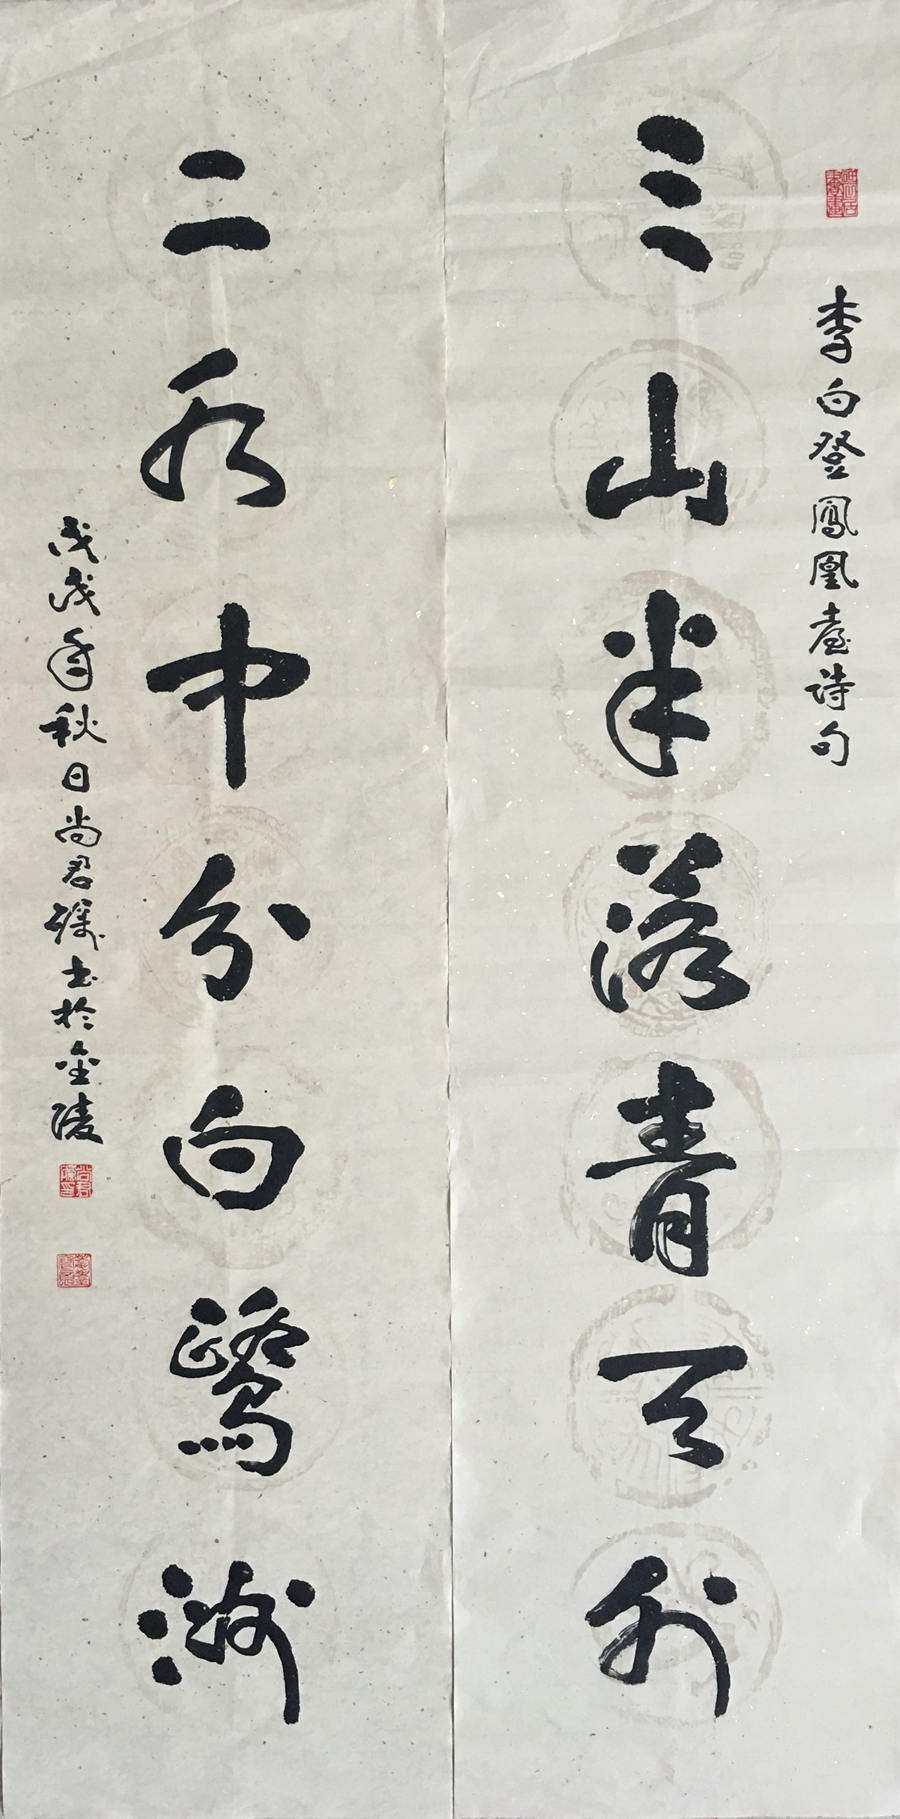 李白登鳳凰臺詩句
三山半落青天外
二水中分白鷺洲
戊戌年秋日尚君礪書於金陵